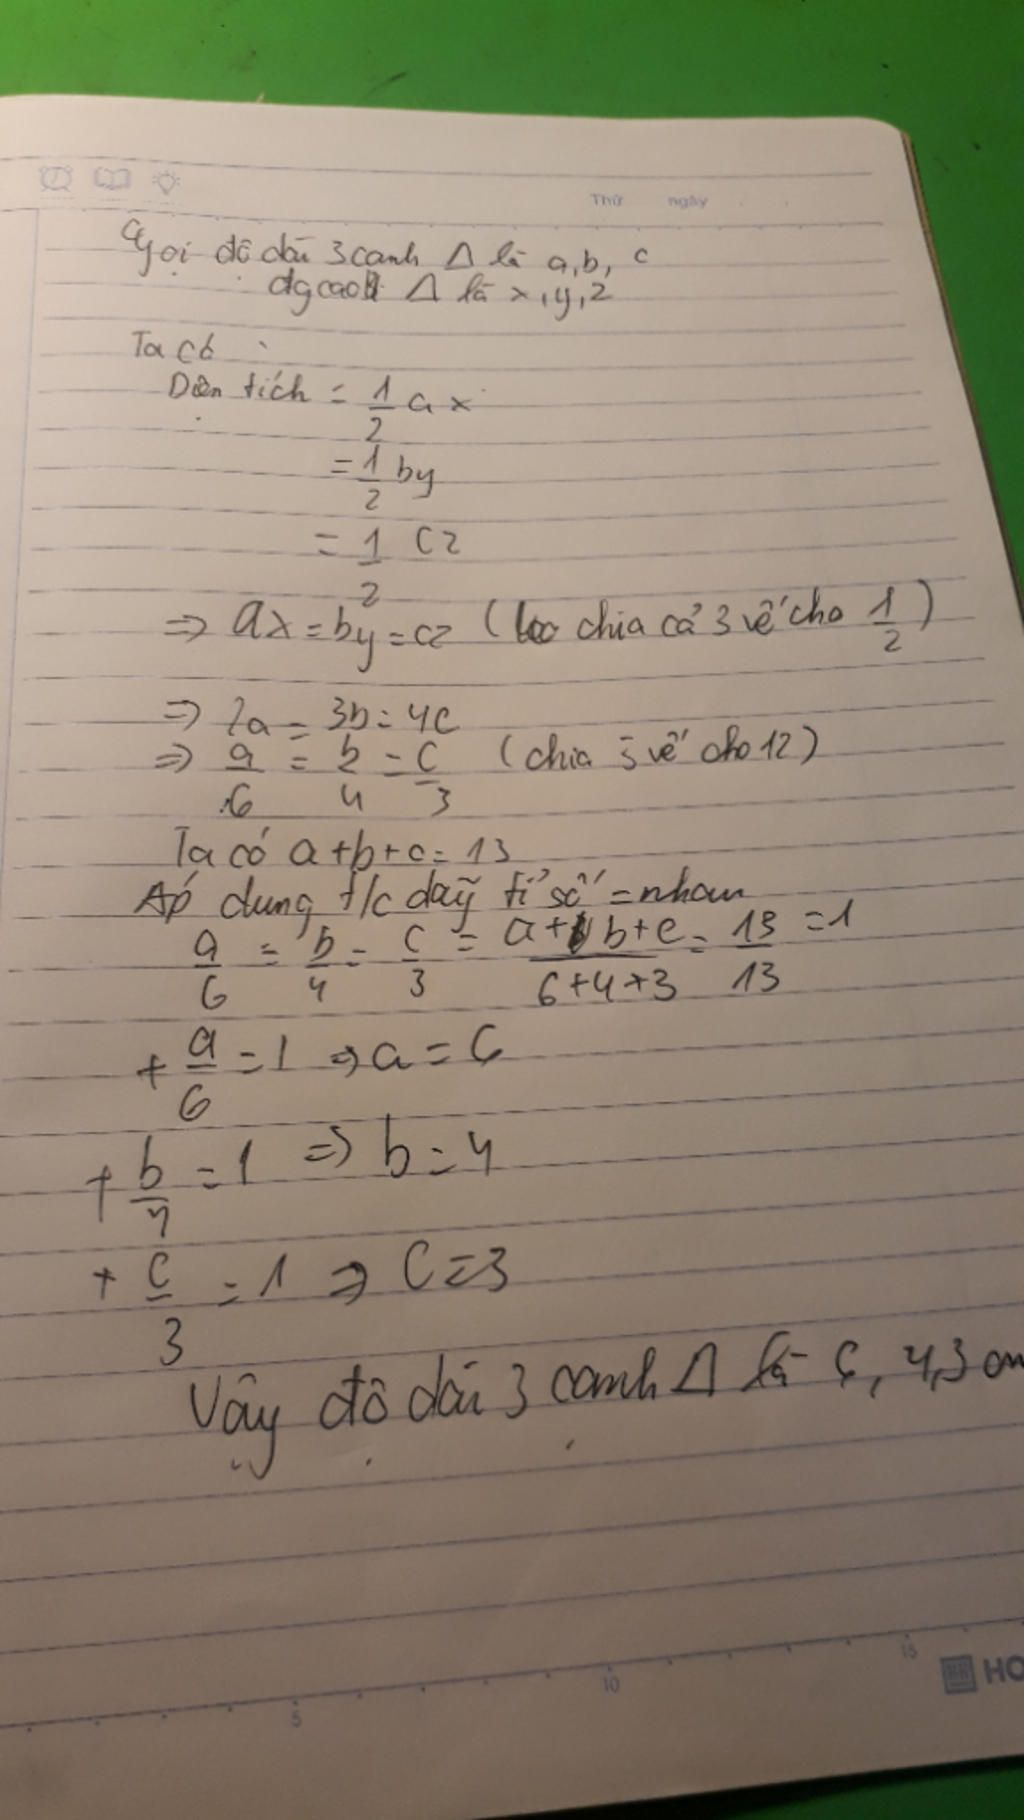 Thứ ngày
Gọi độ dài 3 cạnh Δ là a, b, c
đg cao Δ là x, y, z
Ta có
Diện tích = 1/2 a x
= 1/2 by
= 1/2 cz
=> ax = by = cz ( chia cả 3 vế cho 1/2 )
=> 2a = 3b = 4c
=> a/6 = b/4 = c/3 (chia 3 vế cho 12)
Ta có a+b+c = 13
Áp dụng t/c dãy tỉ số = nhau
a/6 = b/4 = c/3 = a+b+c/6+4+3 = 13/13 = 1
+ a/6 = 1 => a = 6
+ b/4 = 1 => b = 4
+ c/3 = 1 => c = 3
Vậy độ dài 3 cạnh Δ là 6, 4, 3 cm
5 10 15
HO